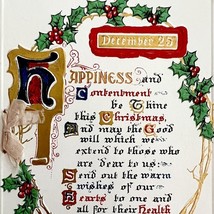 December 25th
HAPPINESS and
Contentment
be Thine
this Christmas,
And may the Good
will which we
extend to those who
are dear to us:
Send out the warm
wishes of our
Hearts to one and
all for their health